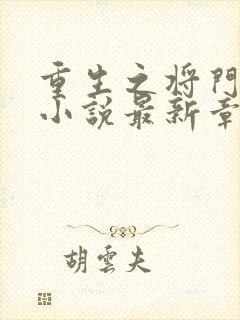 重生之将門
小説最新章
胡雲夫